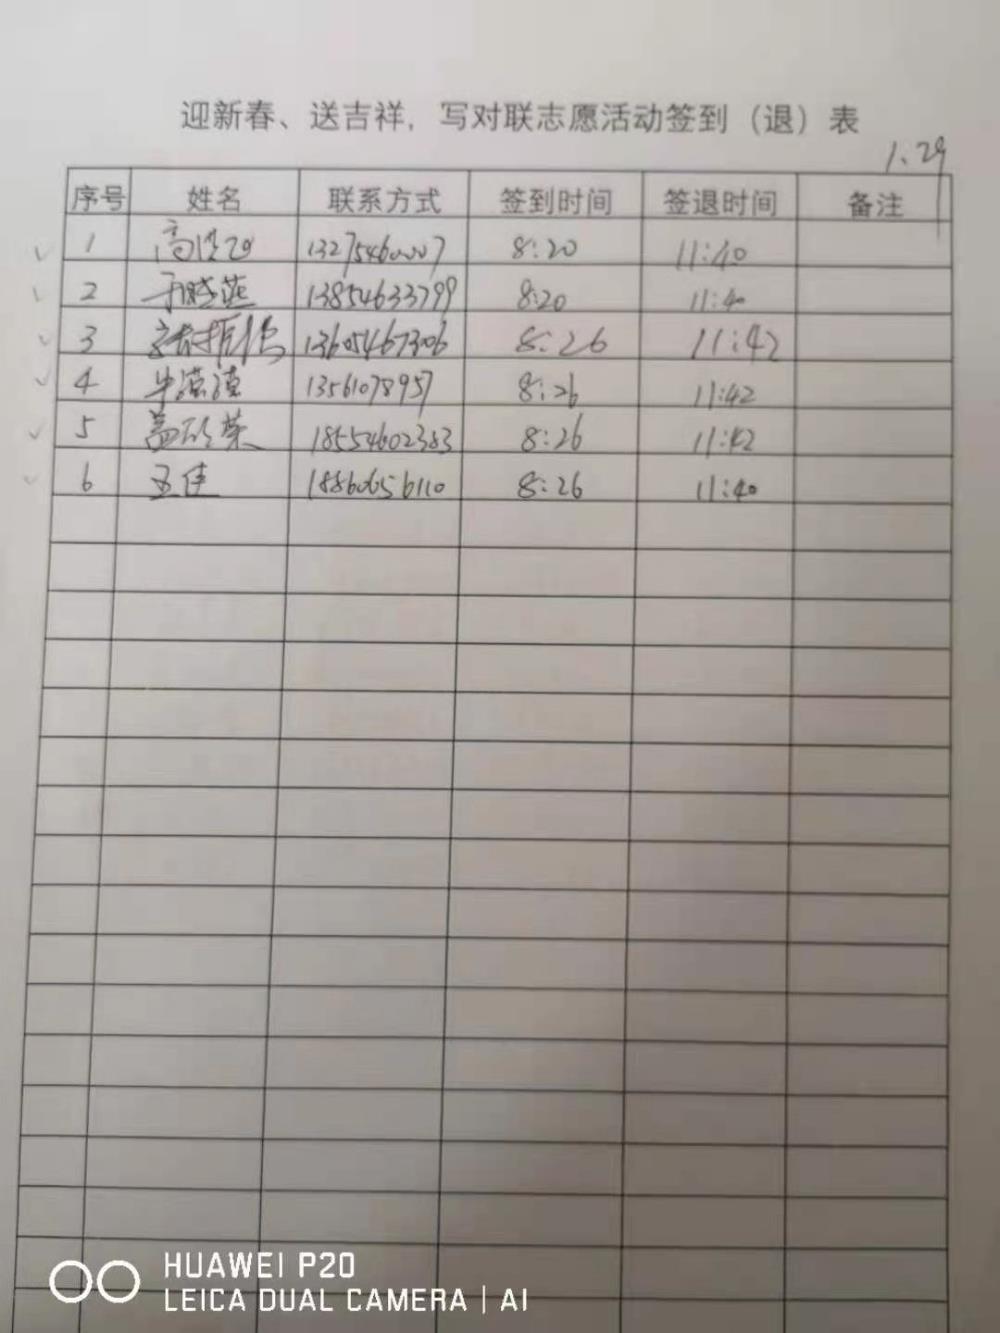 迎新春、送吉祥，写对联志愿活动签到（退）表
1.29
序号 姓名 联系方式 签到时间 签退时间 备注
1 13275460007 8:20 11:40
2 于晓燕 13854633799 8:20 11:40
3 13605467306 8:26 11:42
4 牛滢滢 13561078957 8:26 11:42
5 18554602383 8:26 11:42
6 王佳 18860656110 8:26 11:40
HUAWEI P20
LEICA DUAL CAMERA | AI